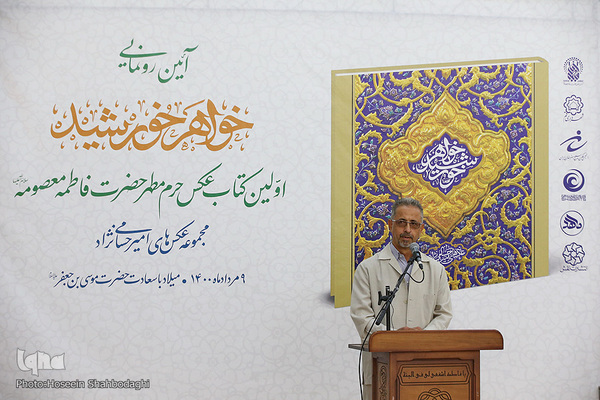 آئین رونمایی
خواهر خورشید
اولین کتاب عکس حرم مطهر حضرت فاطمه معصومه
مجموعه عکس‌های امیر حسامی نژاد
۹ مرداد ماه ۱۴۰۰ - میلاد با سعادت حضرت موسی بن جعفر
خواهر خورشید
iqna
Photo:Hosein Shahbodaghi